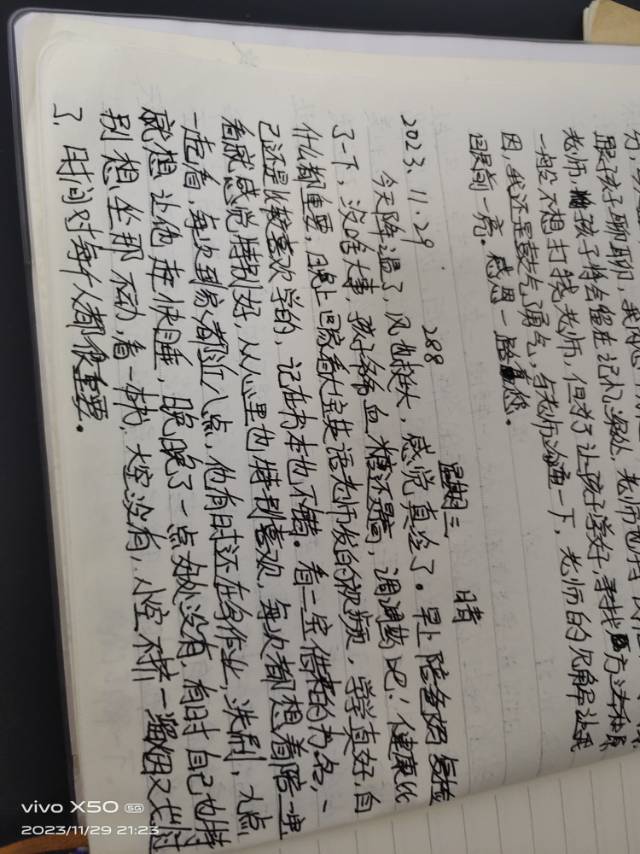 跟孩子聊聊,我
老师,孩子将会留在记忆深处,老师也
一般不想打扰老师,但为了让孩子学好,寻找方法和原
因,我还是鼓气勇气,与老师沟通一下,老师的见解让我
眼前一亮。感恩一路有您。
2023.11.29 288 星期三 晴
今天降温了,风也挺大,感觉真冷了。早上陪爸妈复检
了一下,没啥大事,孩子爸血糖还是高,调调药吧!健康比
什么都重要,晚上回家看大宝英语老师发的视频,学学真好,自
己还是比较喜欢学的,记在书本也不错。看二宝借来的
看就感觉特别好,从心里也特别喜欢,每次都想着陪一宝
一起看,每次到家都近八点,他有时还在写作业,洗刷,九点
就想让他赶快睡,晚晚了一点好处没有,有时自己也特
别想坐那不动,看一本书,大空没有,小空不挤一眨眼又忙过
了,时间对每个人都很重要。
vivo X50 5G
2023/11/29 21:23